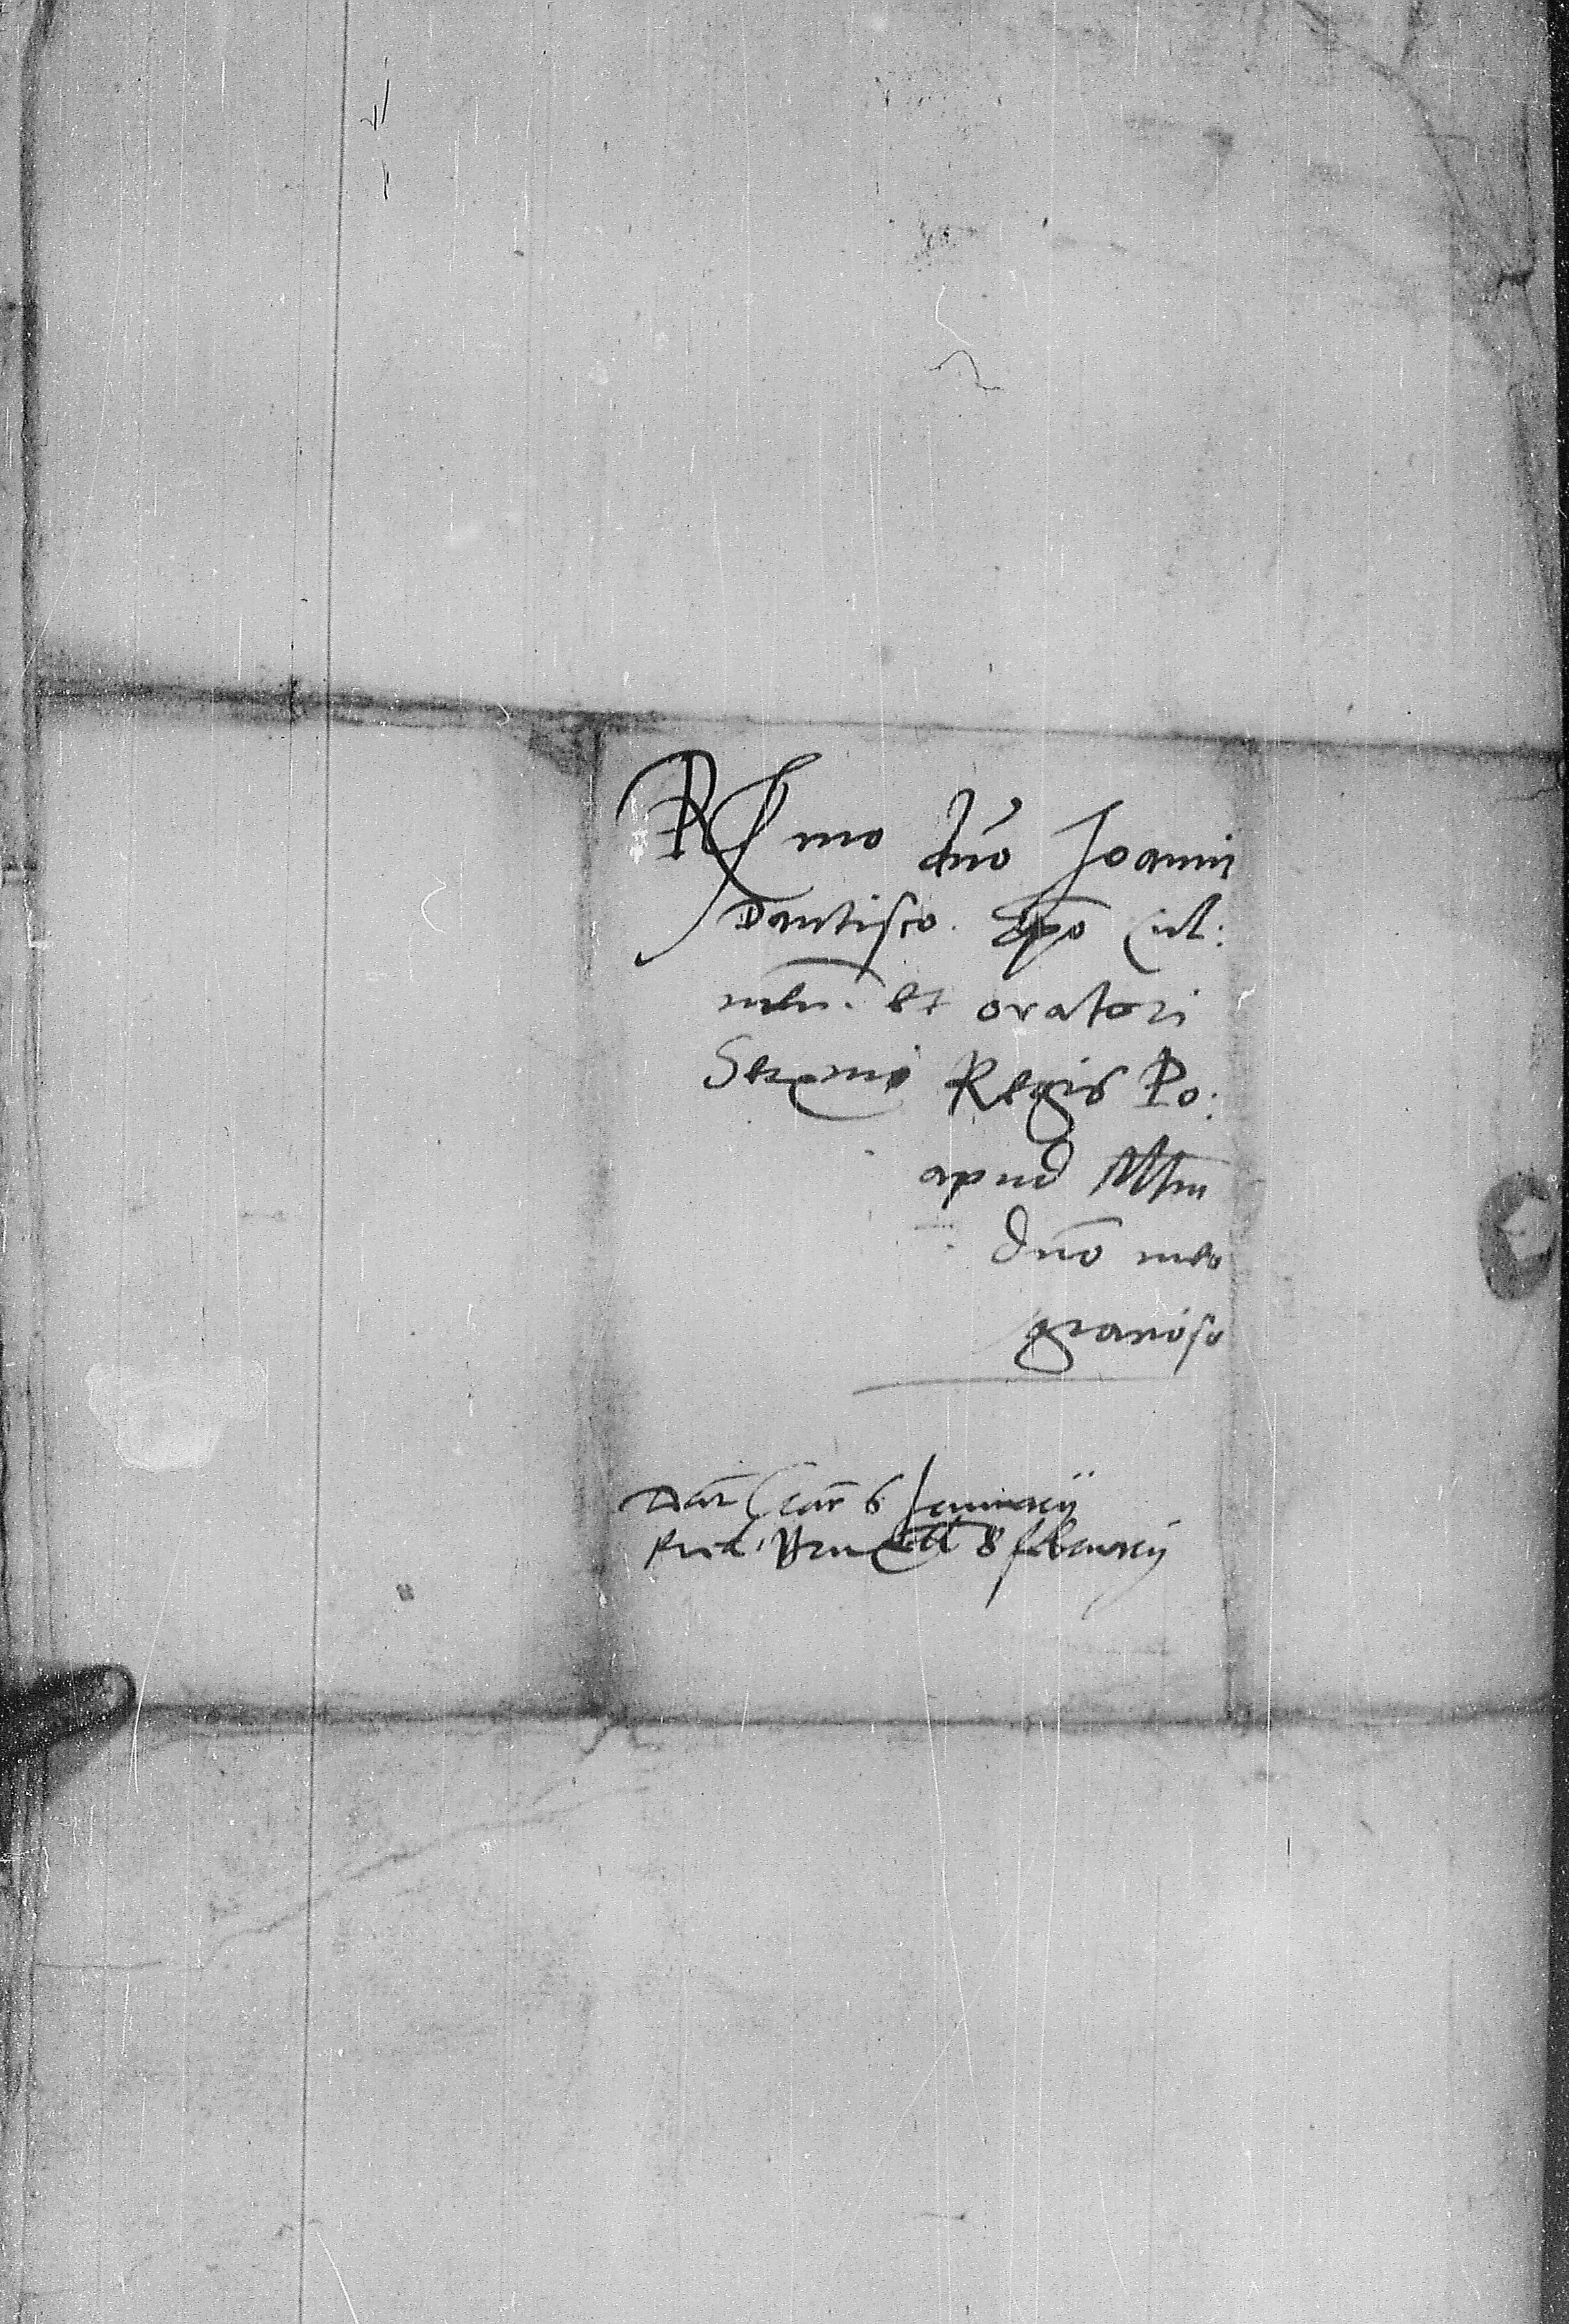 R mo dno Joanni
Dantisco. Epo Cul:
men. et oratori
Sermi Regis Po:
apud Mtm
dno meo
gracioso
Dat Crac 6 Januarii
Red. Bruxell 8 februarij